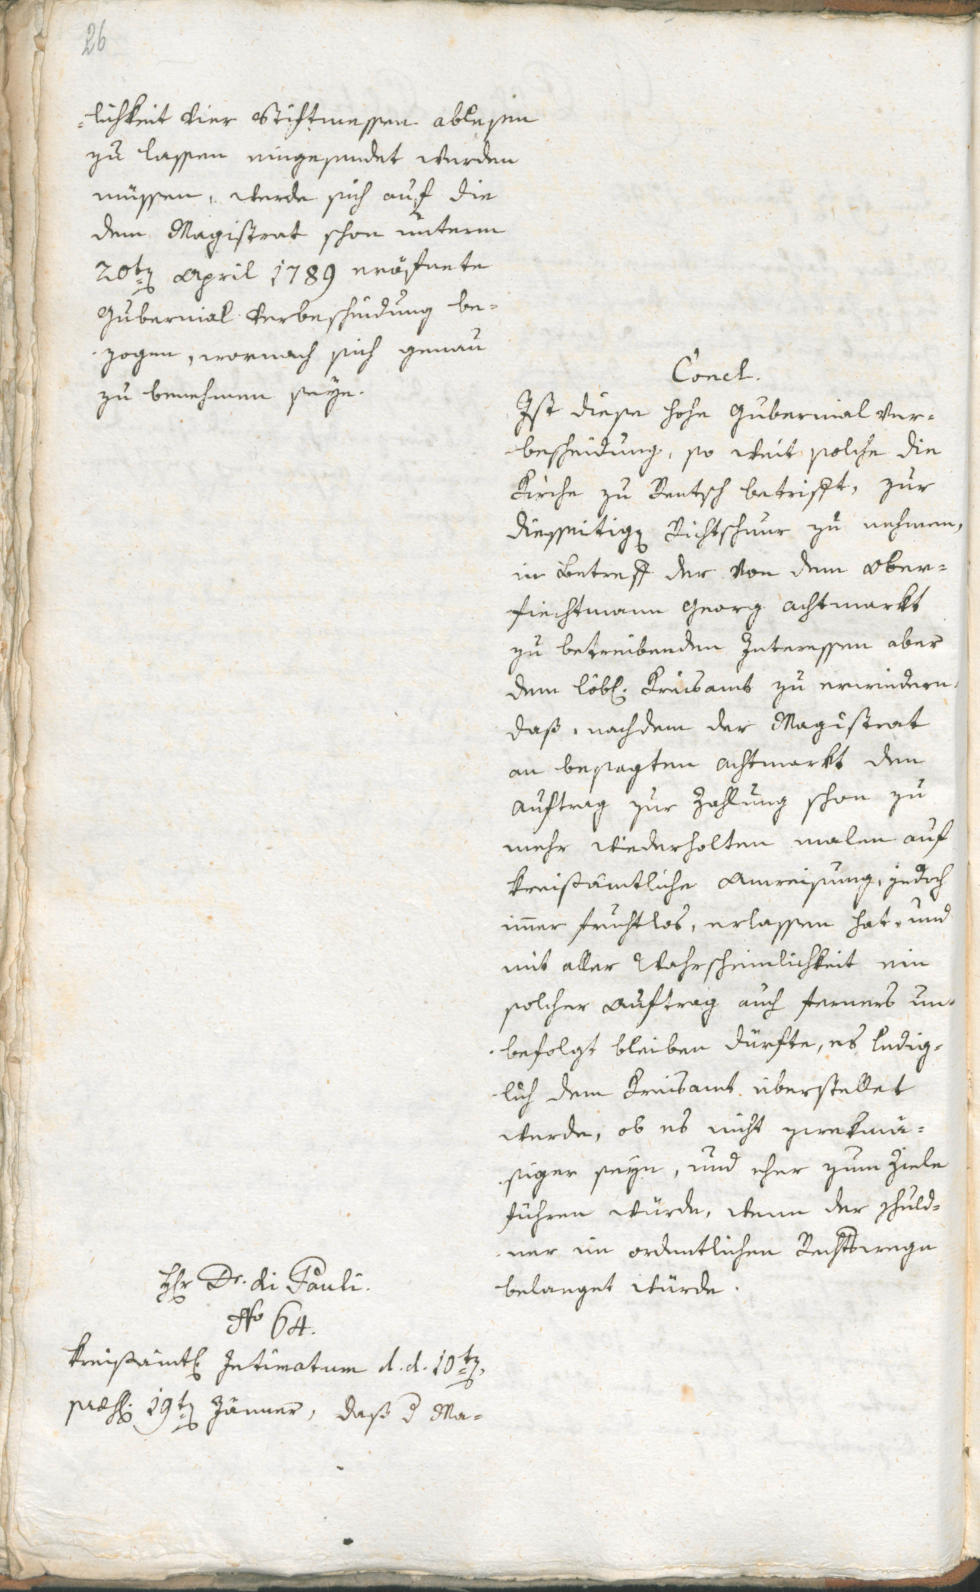 26
-lichkeit vier Stiftmessen ablesen
zu lassen eingesendet werden
müssen, werde sich auf die
dem Magistrat schon unterm
20ten April 1789 eröfnete
Gubernial Verbescheidung be-
zogen, wornach sich genau
zu benehmen seye.
Concl.
Ist diese hohe Gubernial Ver-
bescheidung, so weit solche die
Kirche zu Rentsch betrift, zur
diesseitigen Richtschnur zu nehmen,
in Betreff der von dem Ober-
fiechtmann Georg Achtmarkt
zu betreibenden Interessen aber
dem löbl. Kreisamt zu erwiedern,
daß, nachdem der Magistrat
an besagten Achtmarkt den
Auftrag zur Zahlung schon zu
mehr wiederholten malen auf
kreisämtliche Anweisung, jedoch
immer fruchtlos, erlassen hat, und
mit aller Wahrscheinlichkeit ein
solcher Auftrag auch ferners un-
befolgt bleiben dürfte, es ledig-
lich dem Kreisamt überstellet
werde, ob es nicht zwekmä-
siger seyn, und eher zum Ziele
führen würde, wenn der Schuld-
ner im ordentlichen Rechtswege
belanget würde.
Hr Dr. di Pauli.
No 64.
Kreisämtl Intimatum d. d. 10ten,
præs. 19ten Jänner, daß d Ma-